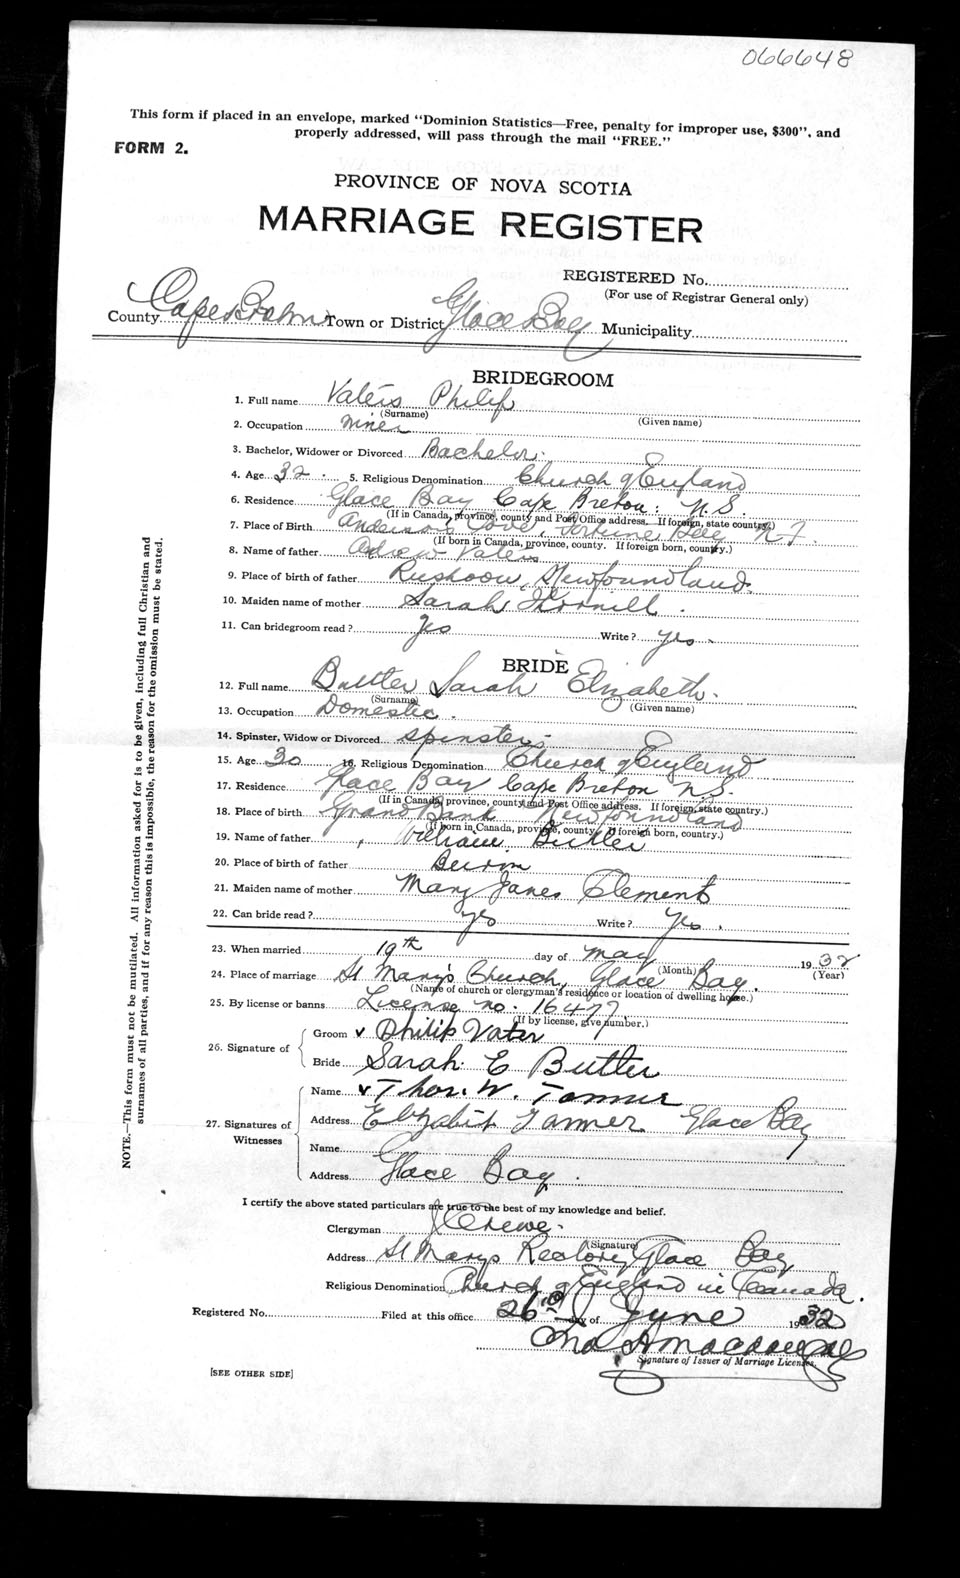 066648
This form if placed in an envelope, marked "Dominion Statistics—Free, penalty for improper use, $300", and
properly addressed, will pass through the mail "FREE."
FORM 2.
PROVINCE OF NOVA SCOTIA
MARRIAGE REGISTER
REGISTERED No.
(For use of Registrar General only)
County Cape Breton Town or District Glace Bay Municipality
BRIDEGROOM
1. Full name Philip
(Surname) (Given name)
2. Occupation miner
3. Bachelor, Widower or Divorced Bachelor.
4. Age 32. 5. Religious Denomination Church of England
6. Residence Glace Bay Cape Breton: N.S.
(If in Canada, province, county and Post Office address. If foreign, state country.)
7. Place of Birth Cove, Bay N.F.
(If born in Canada, province, county. If foreign born, country.)
8. Name of father
9. Place of birth of father Rushoon, Newfoundland.
10. Maiden name of mother Sarah Thornill.
11. Can bridegroom read? Yes Write? Yes.
BRIDE
12. Full name Butler Sarah Elizabeth.
(Surname) (Given name)
13. Occupation Domestic.
14. Spinster, Widow or Divorced Spinster
15. Age 30 16. Religious Denomination Church of England
17. Residence Glace Bay Cape Breton N.S.
(If in Canada, province, county and Post Office address. If foreign, state country.)
18. Place of birth Grand Bank Newfoundland
(If born in Canada, province, county. If foreign born, country.)
19. Name of father William Butler
20. Place of birth of father Burin
21. Maiden name of mother Mary Jane Clement
22. Can bride read? Yes Write? Yes.
23. When married 19th day of May 1932
(Month) (Year)
24. Place of marriage St Mary's Church, Glace Bay.
(Name of church or clergyman's residence or location of dwelling house.)
25. By license or banns License no. 16477
(If by license, give number.)
26. Signature of Groom Philip Vater
Bride Sarah E Butler
27. Signatures of Witnesses Name Thos. W. Tanner
Address Elizabeth Tanner Glace Bay
Name
Address Glace Bay.
I certify the above stated particulars are true to the best of my knowledge and belief.
Clergyman
(Signature)
Address St Marys Rectory Glace Bay
Religious Denomination Church of England in Canada.
Registered No. Filed at this office 26 day of June 1932
Signature of Issuer of Marriage Licenses.
[SEE OTHER SIDE]
NOTE.—This form must not be mutilated. All information asked for is to be given, including full Christian and
surnames of all parties, and if for any reason this is impossible, the reason for the omission must be stated.